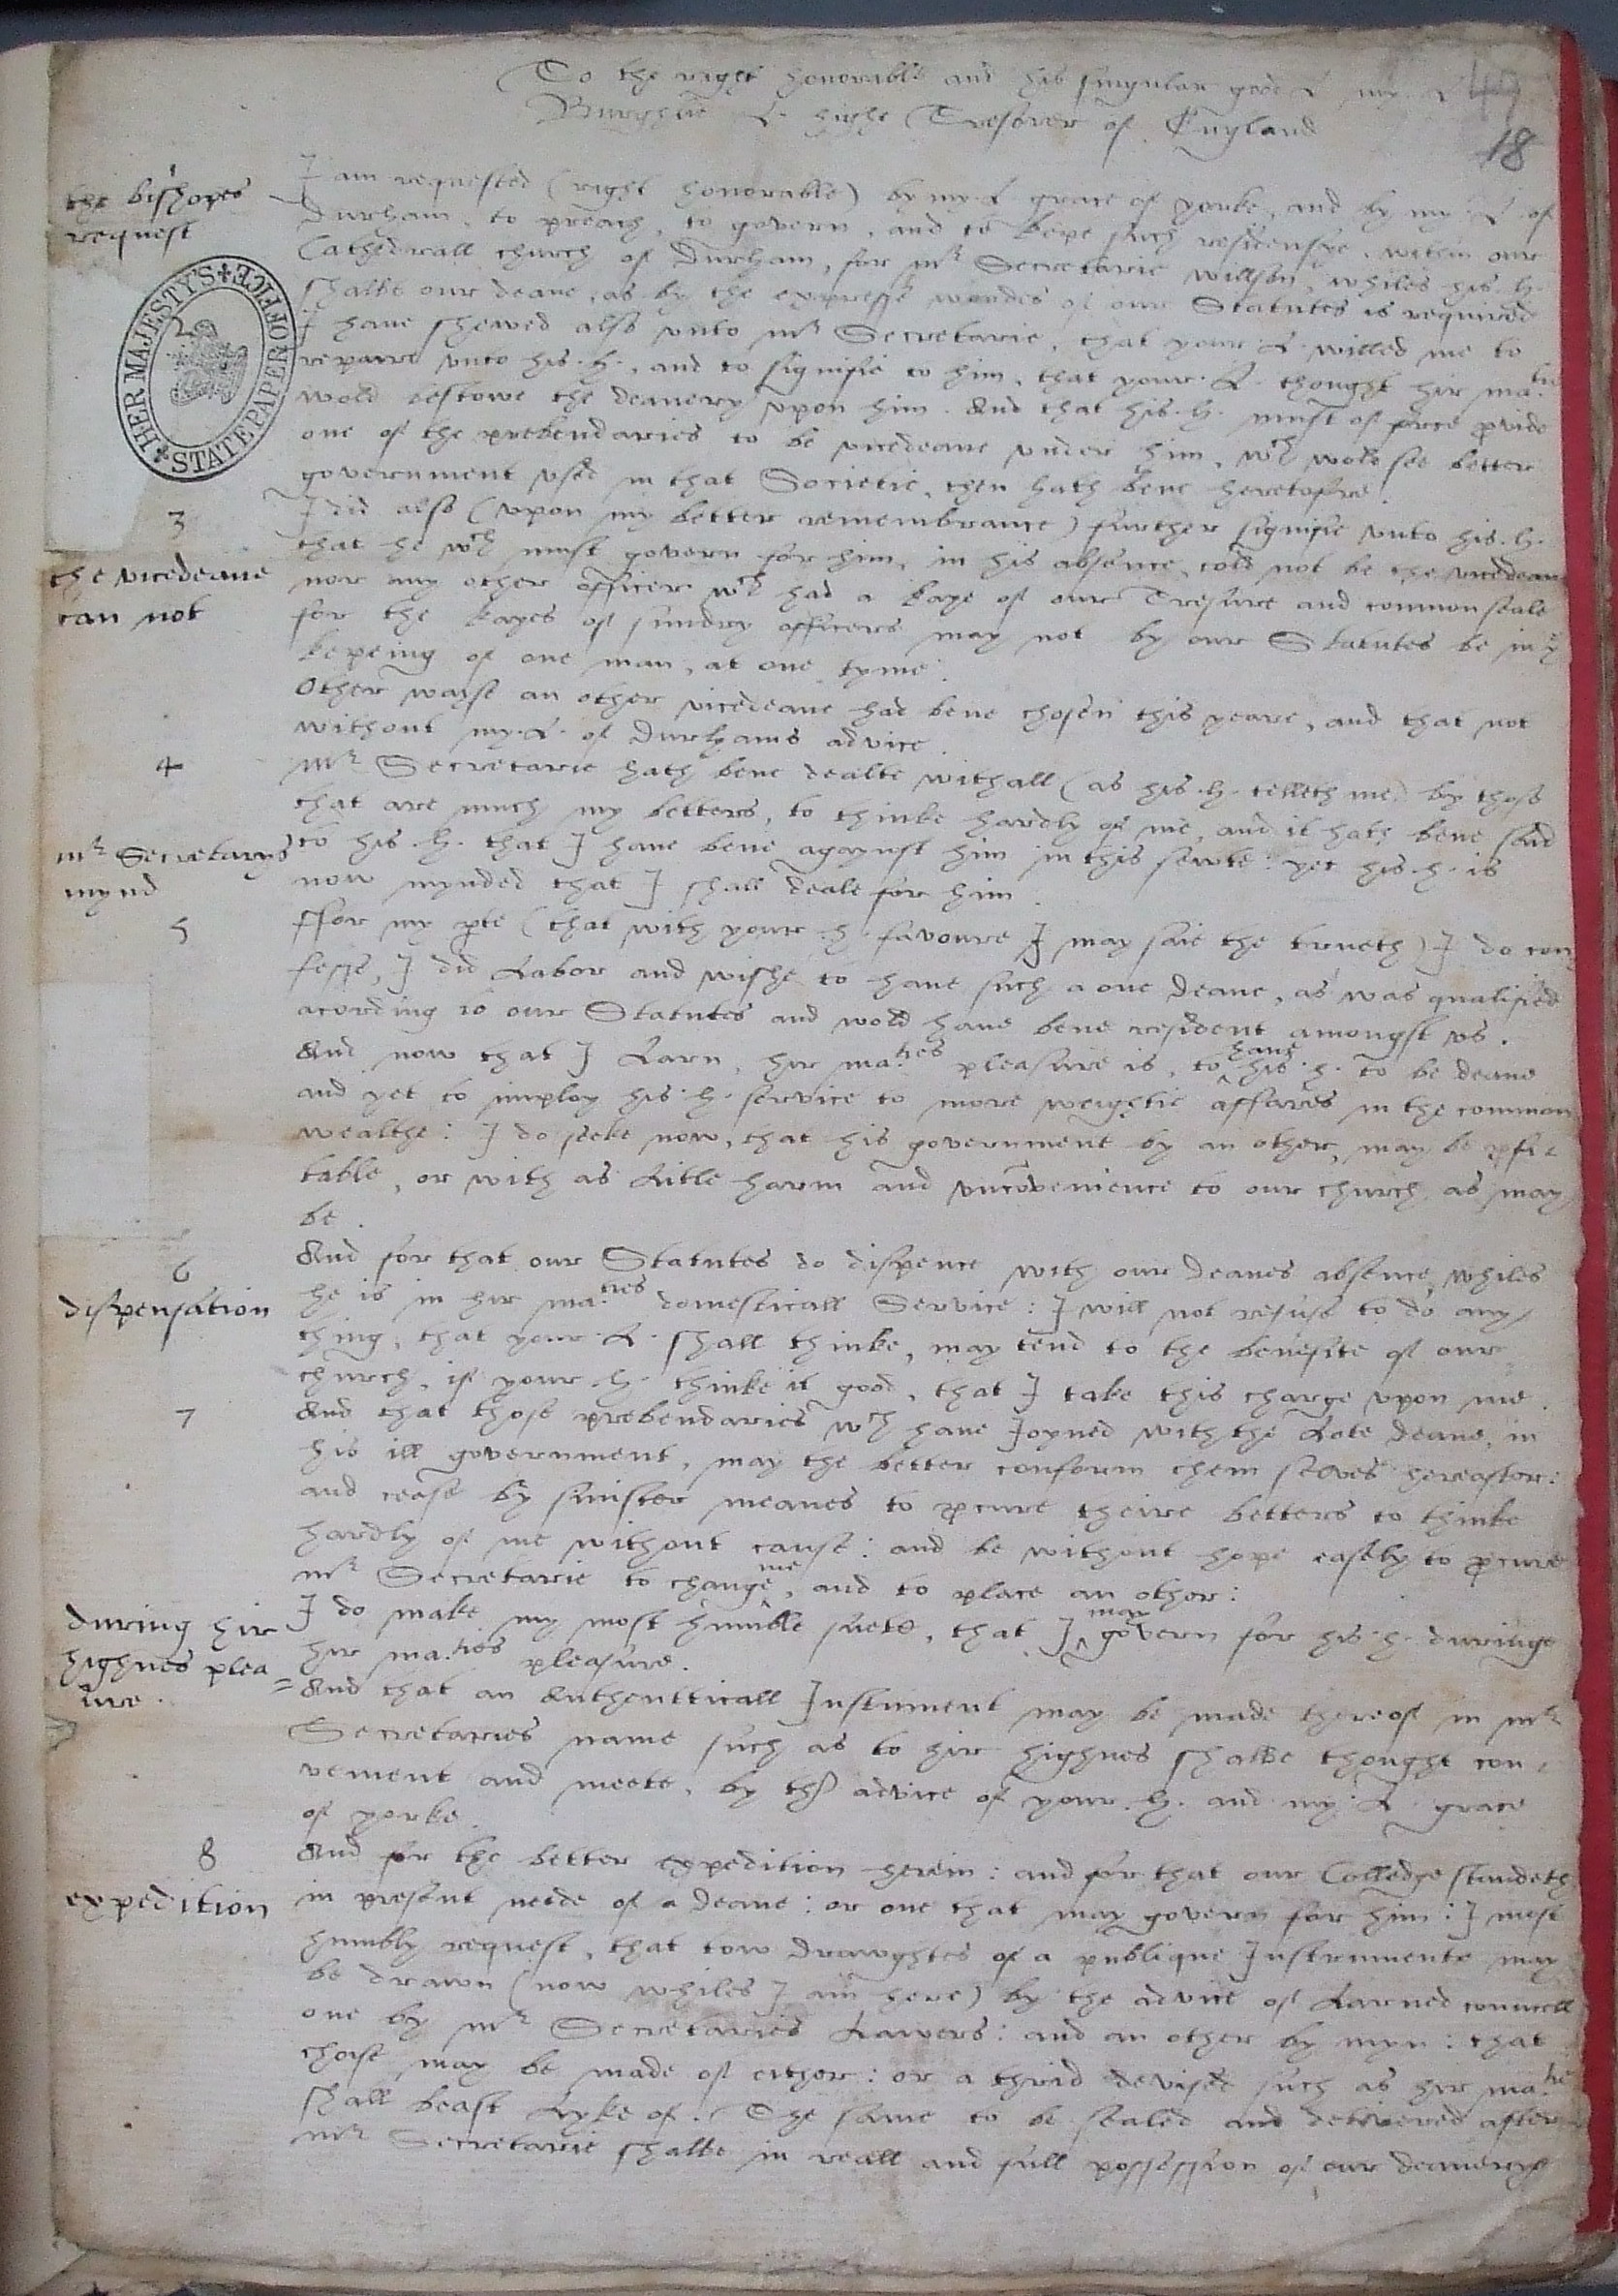 To the right honorable and his singular good L my L
Burghlie L. highe Tresorer of England
49
18
1
the bishopes
request
I am requested (right honorable) by my L grace of yorke, and by my L of
Durham, to preach, to govern, and to kepe such residensye, within our
Cathedrall church of Durham, for mr Secretarie willson, whiles his .h.
shalbe our deane, as by the expresse wordes of our Statutes is required
HER MAJESTY'S STATE PAPER OFFICE
2
I have shewed also unto mr Secretarie, that your L. willed me to
repaire unto his .h., and to signifie to him, that your L. thought hir ma.tie
wold bestowe the deanery upon him. And that his .h. must of force provide
one of the prebendaries to be vicedeane under him, wch wold see better
government used in that Societie, then hath bene heretofre.
3
the vicedeane
can not
I did also (upon my better remembrance) further signifie unto his .h.
that he wch must govern for him, in his absence, cold not be the vicedean
nor any other officer wch had a kaye of our Tresure and common seale
for the kayes of sundry officers may not by our Statutes be in ye
kepeing of one man, at one tyme.
Other wayse an other vicedeane had bene chosen this yeare, and that not
without my L. of Durhams advice.
4
mr Secretarys
mynd
mr Secretarie hath bene dealte withall (as his .h. telleth me) by those
that are much my betters, to thinke hardly of me, and it hath bene said
to his .h. that I have bene agaynst him in this sewte: yet his .h. is
now mynded that I shall deale for him.
5
ffor my pte (that with your .h. favoure I may saie the trueth) I do con
fesse, I did Labor and wishe to have such a one Deane, as was qualified
acording to our Statutes and wold have bene resident amongst us.
And now that I Larn, hir ma.ties pleasure is, to ^have his .h. to be deane
and yet to imploy his .h. service to more weightie affares in the common
wealthe: I do seeke now, that his government by an other, may be pfi-
table, or with as Litle harm and unconvenience to our church as may
be.
6
dispensation
And for that our Statutes do dispence with our Deanes absence, whiles
he is in hir ma.ties domesticall Service: I will not refuse to do any
thing, that your L. shall thinke, may tend to the benefite of our
church, if your .h. thinke it good, that I take this charge upon me.
7
And that those prebendaries wch have Joyned with the Late Deane, in
his ill government, may the better conform them selves hereafter:
and cease by sinister meanes to pcure theire betters to thinke
hardly of me without cause: and be without hope easely to pcure
mr Secretarie to change ^me, and to place an other:
during hir
highnes plea
=sure.
I do make my most humble suete, that I ^may govern for his .h. duringe
hir ma.ties pleasure.
And that an Authentticall Instrument may be made thereof in mr
Secretaries name such as to hir highnes shalbe thought con-
venient and meete, by the advice of your .h. and my L. grace
of yorke.
8
expedition
And for the better expedition herein: and for that our Colledge standeth
in present neede of a Deane: or one that may govern for him: I most
humbly request, that tow Drawghtes of a publique Instrumente may
be drawn (now whiles I am here) by the advice of Larned councell
one by mr Secretaries Lawers: and an other by myn: that
choise may be made of either: or a thrid devised such as hir ma.tie
shall beast Lyke of. The same to be sealed and delivered after
mr Secretarie shalbe in reall and full possession of our deanerye